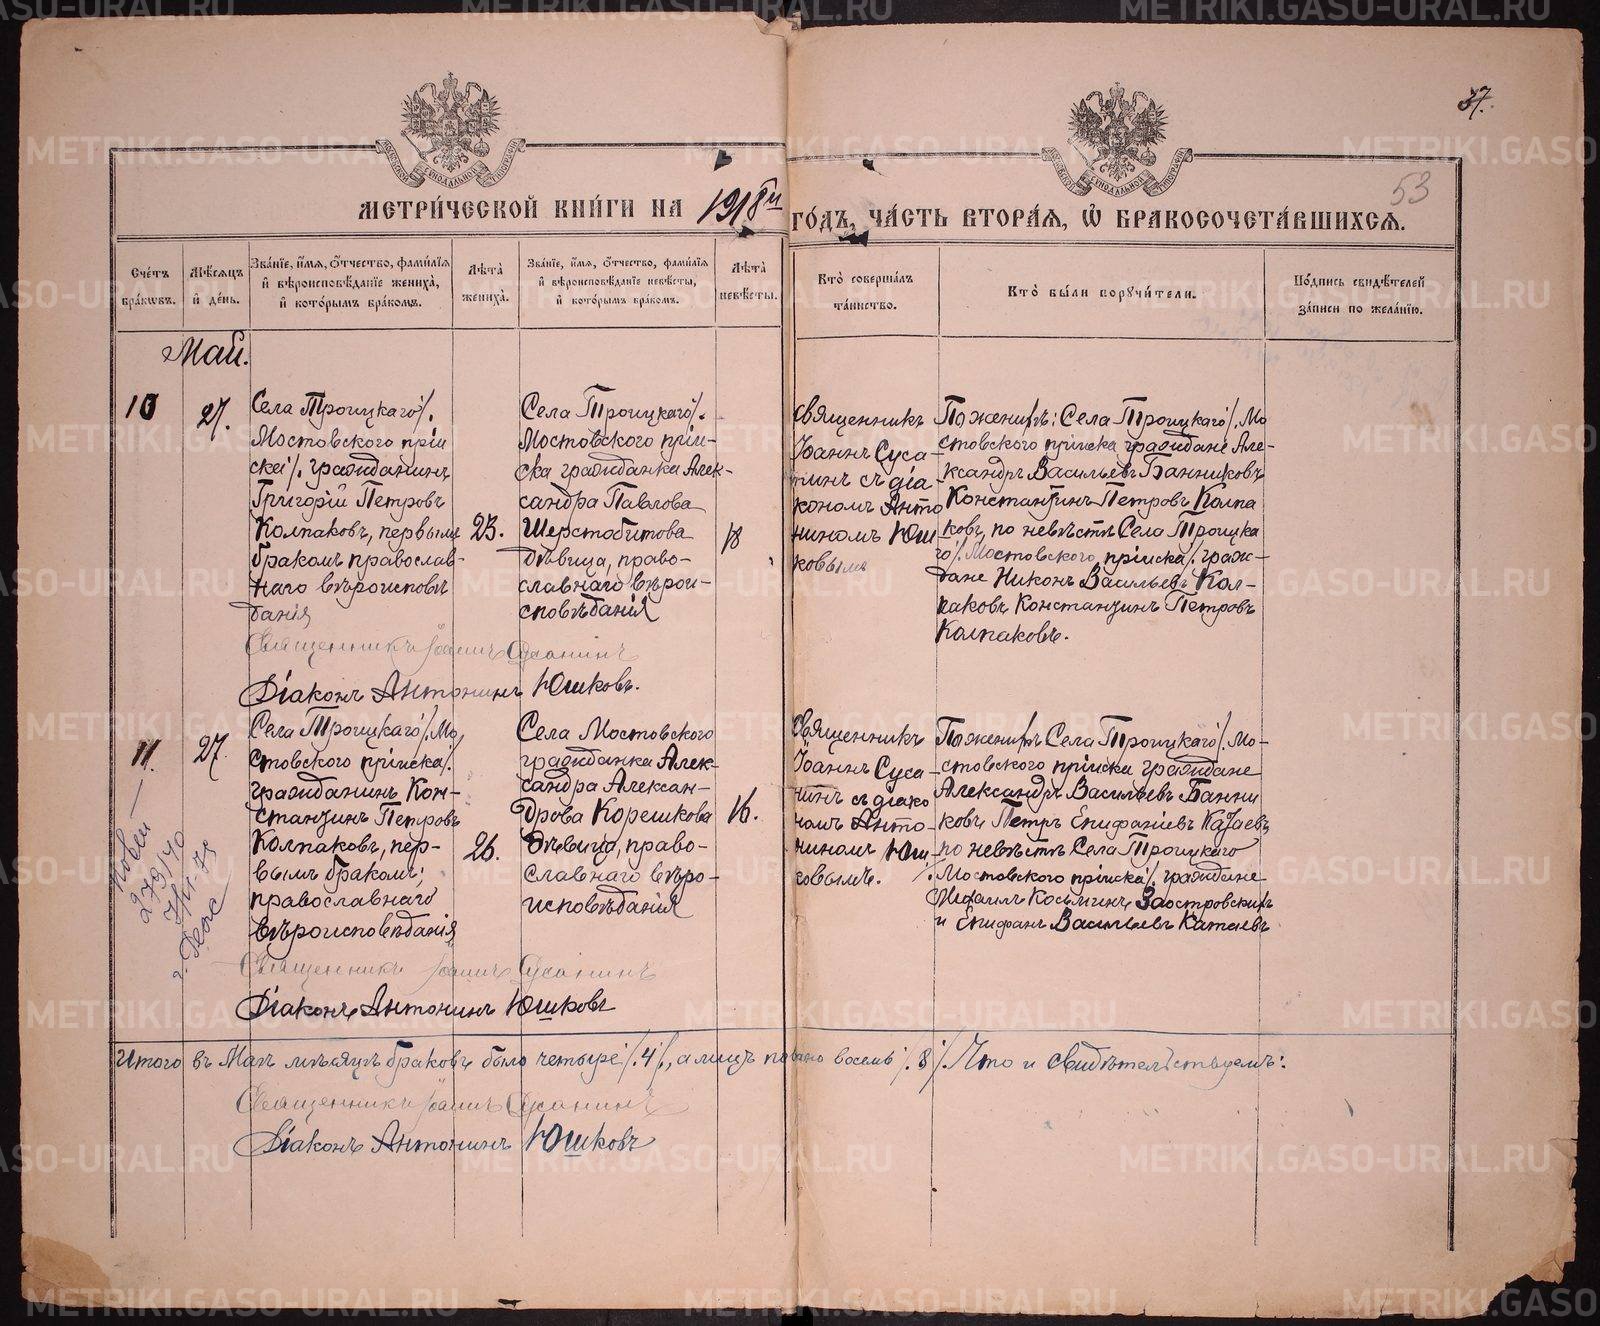 37.
53
МЕТРИ́ЧЕСКОЙ КНИ́ГИ НА 1918й
ГО́ДЪ, ЧА́СТЬ ВТОРА́Я, Ѡ БРАКОСОЧЕТА́ВШИХСЯ.
Сче́тъ бра́кѡвъ.
Мѣ́сяцъ и҆ де́нь.
Зва́нїе, и҆́мя, ѻ҆́тчество, фами́лїя и҆ вѣроисповѣ́данїе жениха̀, и҆ кото́рымъ бра́комъ.
Лѣ́та̀ жениха̀.
Зва́нїе, и҆́мя, ѻ҆́тчество, фами́лїя и҆ вѣроисповѣ́данїе невѣ́сты, и҆ кото́рымъ бра́комъ.
Лѣ́та̀ невѣ́сты.
Кто̀ соверша́лъ та́инство.
Кто̀ бы́ли порꙋчи́тели.
По́дпись свидѣ́телей за́писи по жела́нїю.
Май.
10
27.
Села Троицкаго/.
Мостовского прiи
ска/. гражданинъ
Григорiй Петровъ
Колпаковъ, первымъ
бракомъ православ-
наго вѣроисповѣ
данiя
23.
Села Троицкаго/.
Мостовского прiи-
ска гражданка Алек-
сандра Павлова
Шерстобитова
дѣвица, право-
славнаго вѣрои-
сповѣданiя
18
Священникъ
Iоаннъ Суса-
нинъ съ дiа-
кономъ Анто
ниномъ Юш
ковымъ
По женихѣ: Села Троицкаго/. Мо
стовского прiиска граждане Але-
ксандръ Васильевъ Банниковъ
Константинъ Петровъ Колпа
ковъ, по невѣстѣ Села Троицка
го/. Мостовского прiиска/. граж-
дане Никонъ Васильевъ Кол-
паковъ Константинъ Петровъ
Колпаковъ.
Священникъ Iоаннъ Сусанинъ
Дiаконъ Антонинъ Юшковъ.
11.
27.
Села Троицкаго/. Мо
стовского прiиска/.
гражданинъ Кон-
стантинъ Петровъ
Колпаковъ, пер-
вымъ бракомъ;
православнаго
вѣроисповѣданiя
26.
Села Мостовского
гражданка Алек-
сандра Алексан-
дрова Корешкова
дѣвица, право-
славнаго вѣро-
исповѣданiя
16.
Священникъ
Iоаннъ Суса-
нинъ съ дiако
номъ Анто-
ниномъ Юш-
ковымъ.
По женихѣ Села Троицкаго/. Мо-
стовского прiиска граждане
Александръ Васильевъ Банни
ковъ Петръ Епифанiевъ Катаевъ
по невѣстѣ Села Троицкаго
/. Мостовского прiиска/. граждане
Михаилъ Косьминъ Заостровскихъ
и Епифанъ Васильевъ Катаевъ
Священникъ Iоаннъ Сусанинъ
Дiаконъ Антонинъ Юшковъ
Итого въ Маѣ мѣсяцѣ браковъ было четыре /.4/., а лицъ повѣнчано восемь /.8/. Что и свидѣтельствуемъ:
Священникъ Iоаннъ Сусанинъ
Дiаконъ Антонинъ Юшковъ
METRIKI.GASO-URAL.RU